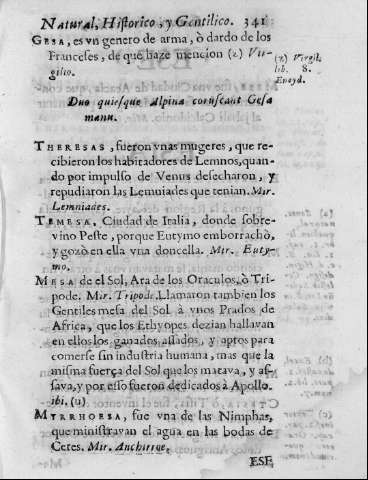 Natural, Historico, y Gentilico. 341
GESA, es vn genero de arma, ò dardo de los
Franceses, de que haze mencion (z) Vir-
gilio.
(z) Virgil.
lib. 8.
Eneyd.
Duo quisque Alpina coruscant Gesa
manu.
THERESAS, fueron vnas mugeres, que re-
cibieron los habitadores de Lemnos, quan-
do por impulso de Venus desecharon, y
repudiaron las Lemniades que tenian. Mir.
Lemniades.
TEMESA, Ciudad de Italia, donde sobre-
vino Peste, porque Eutymo emborrachò,
y gozò en ella vna doncella. Mir. Euty-
mo.
MESA de el Sol, Ara de los Oraculos, ò Tri-
pode. Mir. Tripode. Llamaron tambien los
Gentiles mesa del Sol à vnos Prados de
Africa, que los Ethyopes dezian hallavan
en ellos los ganados assados, y aptos para
comerse sin industria humana, mas que la
misma fuerça del Sol que los matava, y as-
sava, y por esso fueron dedicados à Apollo.
ibi. (u)
MYRRHOESA, fue vna de las Nimphas,
que ministravan el agua en las bodas de
Ceres. Mir. Anchirroe.
ESE